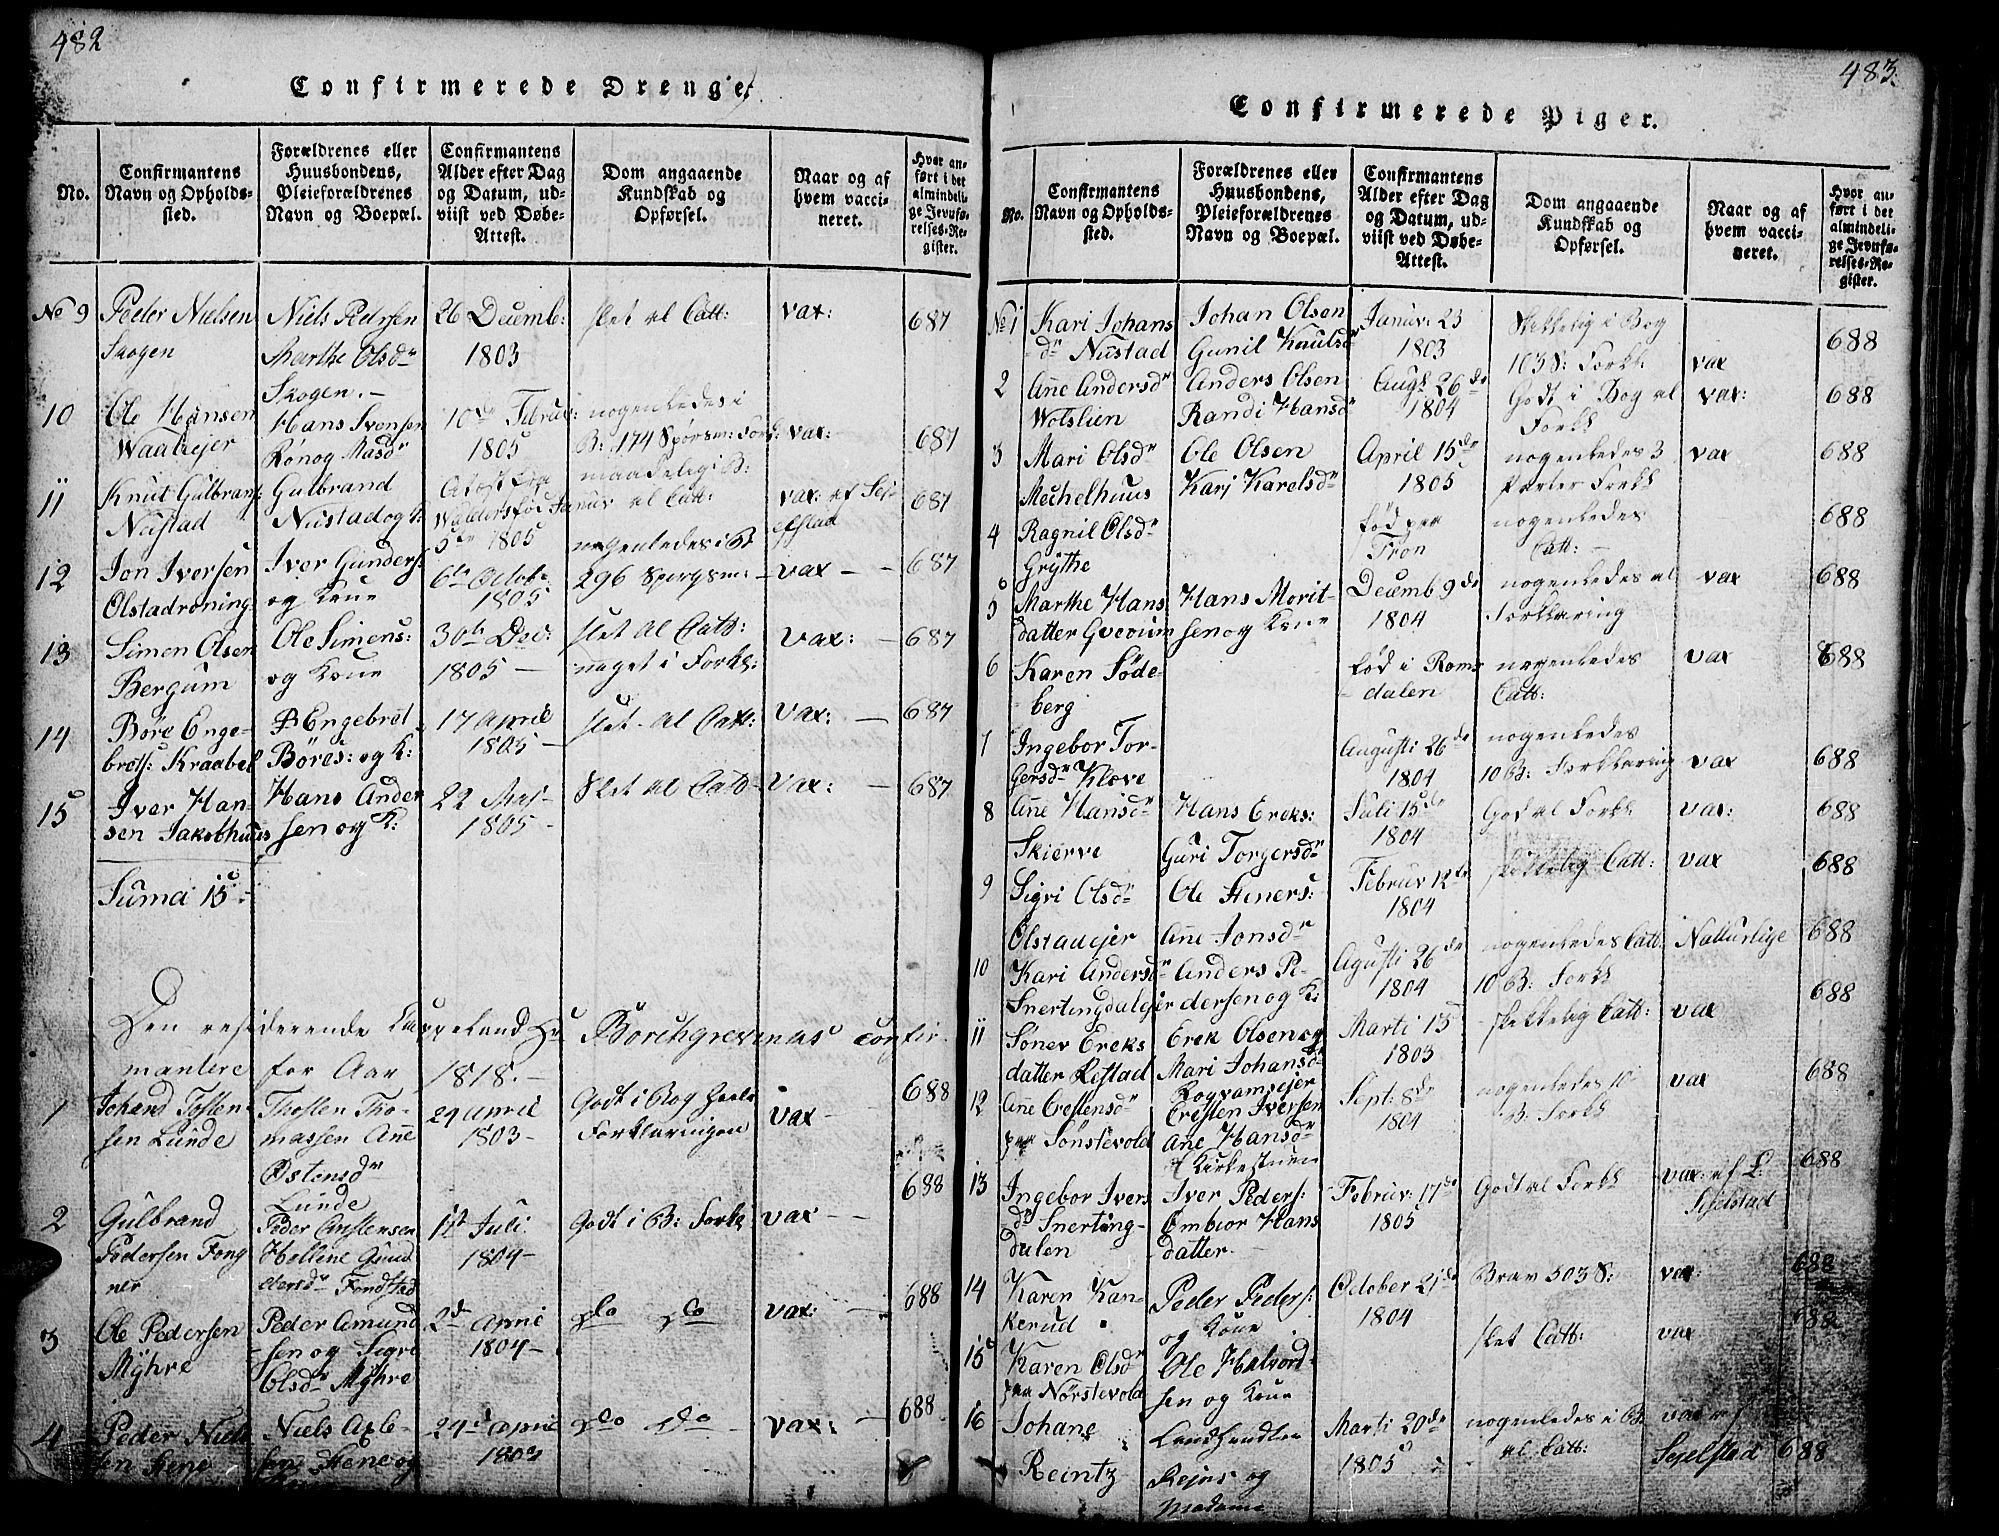 482
Confirmerede Drenge.
No.
Confirmantens
Navn og Opholds-
sted.
Forældrenes eller
Huusbondens,
Pleieforældrenes
Navn og Boepæl.
Confirmantens
Alder efter Dag
og Datum, ud-
viist ved Døbe-
Attest.
Dom angaaende
Kundskab og
Opførsel.
Naar og af
hvem vacci-
neret.
Hvor an-
ført i det
almindeli-
ge Jevnfø-
relses-Re-
gister.
No 9
Peder Nielsen
Skogen
Niels Pedersen
Marthe Olsdr
Skogen.-
26 Decemb:
1803
slet al Catt:
vax:
687
10
Ole Hansen
Waaleejer
Hans Svensen
Rønog Masdr
10de Februar:
1805
nogenledes i
B: 174 Spørsm: Fork:
vax:
687
11
Knut Gulbrans:
Nustad
Gulbrand
Nustad og K:
5te 1805
maadelig i B:
al Catt:
vax: af Sej-
elstad
687
12
Jon Iversen
Olstadroning
Iver Gunders:
og Kone
6te Octob:
1805
nogenledes i B
296 Spørgsm:
vax
687
13
Simen Olsen
Bergum
Ole Simens:
og Kone
30te Dec:
1805
slet al Catt:
noget i Fork:
vax:
687
14
Børe Enge-
brets: Kraabøl
Engebret
Børes: og K:
17 April
1805
slet al Catt:
vax:
687
15
Iver Han-
sen Jakobhuus
Hans Ander
sen og K:
22 Maj
1805
Slet al Catt
vax:
687
Suma 15
Den residerende Cappeland Hr Borchgrevinks confir-
mantere for Aar 1818.
1
Johand Tosten-
sen Lunde
Thosten Tho-
massen Ane
Østensdr
Lunde
24 April
1803
Godt i Bog heele
Forklaringen
vax
688
2
Gulbrand
Pedersen Fong
ner
Peder Anstensen
Helline Gund
dersdr Fondstad
1st Juli
1804
Godt i B: Fork:
vax
688
3
Ole Pedersen
Myhre
Peder Amund
sen og Sigri
Olsdr Myhre
2d April
1804
Do Do
vax:
688
4
Peder Niels
sen Stene
Niels Asb-
sen Stene og
24d April
1803
Do Do
vax:
688
483.
Confirmerede Piger.
No.
Confirmantens
Navn og Opholds-
sted.
Forældrenes eller
Huusbondens,
Pleieforældrenes
Navn og Boepæl.
Confirmantens
Alder efter Dag
og Datum, ud-
viist ved Døbe-
Attest.
Dom angaaende
Kundskab og
Opførsel.
Naar og af
hvem vacci-
neret.
Hvor an-
ført i det
almindeli-
ge Jevnfø-
relses-Re-
gister.
No 1
Kari Johans
dr Nustad
Johan Olsen
Gunil Knutsdr
Januv. 23
1803
Skikkelig i Bog
103 S: Forkl.
vax
688
2
Ane Andersdr
Wolslien
Anders Olsen
Randi Hansdr
Augt 26de
1804
Godt i Bog al
Forkl
vax:
688
3
Mari Olsdr
Mechelhuus
Ole Olsen
Karj Karelsdr
April 15de
1805
nogenledes 3
Parter Forkl
vax
688
4
Ragnil Olsdr
Grythe
fød paa
Fron
nogenledes
Catt:
688
5
Marthe Hans
datter Gveoium
Hans Morit-
sen og Kone
Decemb 9de
1804
nogenledes al
Forklaring
vax
688
6
Karen Søde-
berg
fød i Roms
dalen
nogenledes
Catt:
vax
688
7
Ingebor Tor-
gersdr Kløve
Augusti 26de
1804
nogenledes
10 B: Forklaring
vax
688
8
Ane Hansdr
Skierve
Hans Ereks:
Guri Torgersdr
Juli 15de
1804
God al Forkl
vax:
688
9
Sigri Olsdr
Olstadejer
Ole Steners:
Ane Jonsdr
Februv 12te
1804
skikkelig Catt:
vax
688
10
Kari Andersdr
Snertingdalejer
Anders Pe-
dersen og K:
Agusti 26de
1804
nogenledes Catt.
10 B: Forkl
Natturlige
688
11
Sønev Ereks
datter Restad
Erek Olsen og
Mari Johansdr
Rogvamsejer
Marti 13
1803
skikkelig Catt:
vax
688
12
Ane Crestensdr
paa Sønstevold
Cresten Iversen
Ane Hansdr
Kirkestuen
Sept: 8de
1804
nogenledes 10
B: Forkl
vax
688
13
Ingebor Ivers
dr Snerting-
dalen
Iver Peders:
Embior Hans
datter
Februv: 17de
1805
Godt al Forkl
vax: af L:
Sejelstad
688
14
Karen Kan-
kerud
Peder Peders:
og Kone
October 21de
1804
Brav 503 S:
vax:
688
15
Karen Olsdr
paa Nørstevold
Ole Halvord-
sen og Kone
slet Catt:
vax
688
16
Johane
Reintz
Landhandler
Rejns og
Madame
Marti 20de
1805
nogenledes i B
al Catt:
vax
Sejelstad
688